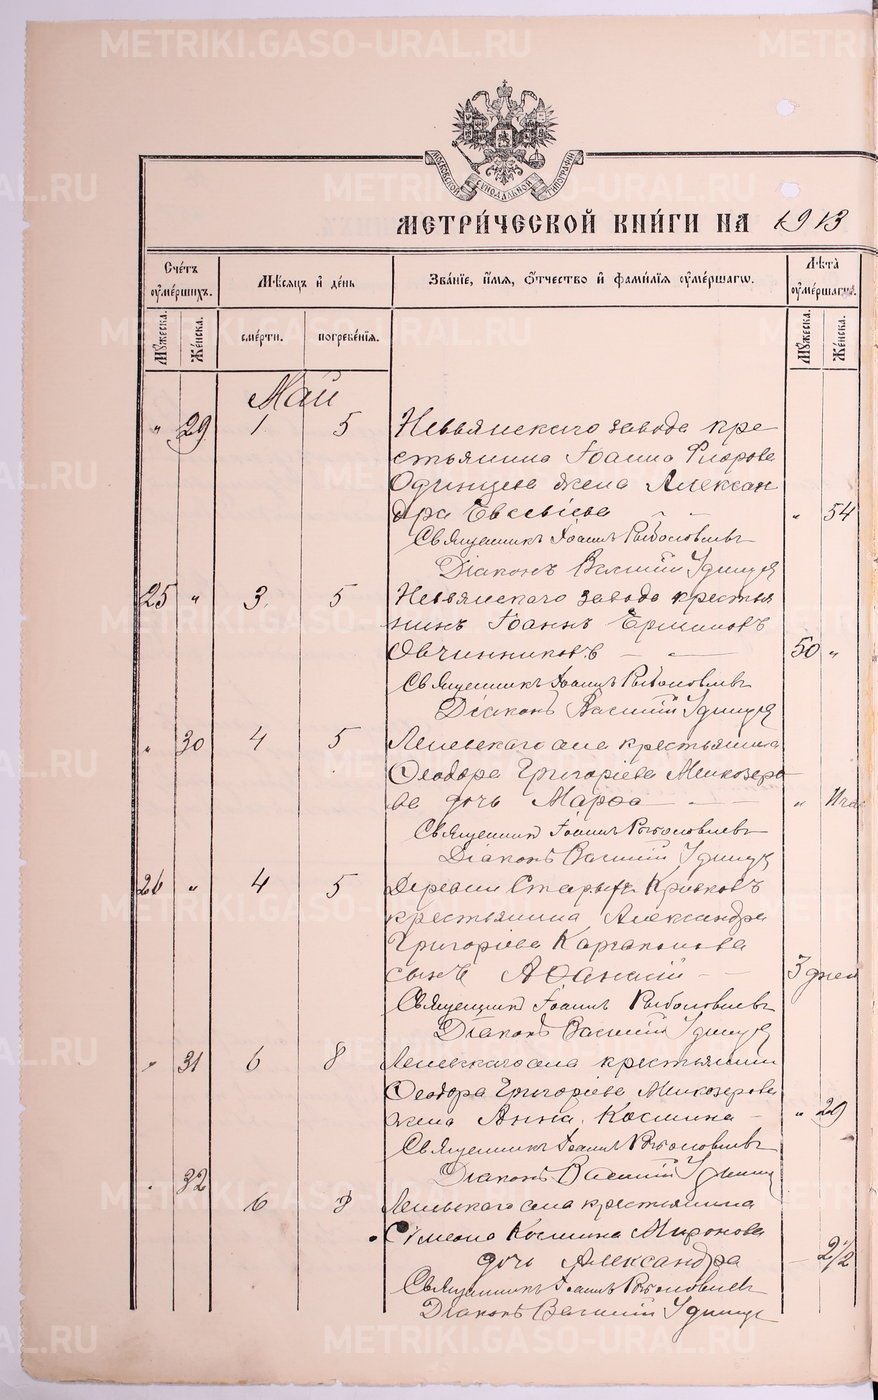 METRIKI.GASO-URAL.RU
МОСКОВСКОЙ СѴНОДАЛЬНОЙ ТИПОГРАФІИ
МЕТРИ́ЧЕСКОЙ КНИ́ГИ НА 1913
Сче́тъ ᲂу҆ме́ршихъ. Мѣ́сяцъ и҆ де́нь Зва́нїе, и҆́мѧ, ѻ҆́тчество и҆ фами́лїѧ ᲂу҆ме́ршагѡ. Лѣ́та ᲂу҆ме́ршагѡ.
Мꙋ́жеска. Же́нска. сме́рти. погребе́нїѧ. Мꙋ́жеска. Же́нска.
Май
" 29 1 5 Невьянскаго завода кре-
стьянина Іоанна Флорова
Одинцова жена Алексан
дра Евсевіева " 54
Священникъ Іоаннъ Рыболовлевъ
Діаконъ Василій Удинцевъ
25 " 3 5 Невьянскаго завода крестья
нинъ Іоаннъ Ершиповъ
Овчинниковъ 50 "
Священникъ Іоаннъ Рыболовлевъ
Діаконъ Василій Удинцевъ
" 30 4 5 Леневскаго села крестьянина
Ѳеодора Григоріева Мелкозеро
ва дочь Марѳа "
Священникъ Іоаннъ Рыболовлевъ
Діаконъ Василій Удинцевъ
26 " 4 5 Деревни Старыхъ Кривковъ
крестьянина Александра
Григоріева Каргаполова
сынъ Аѳанасій 3 дней
Священникъ Іоаннъ Рыболовлевъ
Діаконъ Василій Удинцевъ
" 31 6 8 Леневскаго села крестьянина
Ѳеодора Григоріева Мелкозерова
жена Анна Космина " 29
Священникъ Іоаннъ Рыболовлевъ
Діаконъ Василій Удинцевъ
32 6 8 Леневскаго села крестьянина
Сѵмеона Космина Миронова
дочь Александра 2 1/2
Священникъ Іоаннъ Рыболовлевъ
Діаконъ Василій Удинцевъ